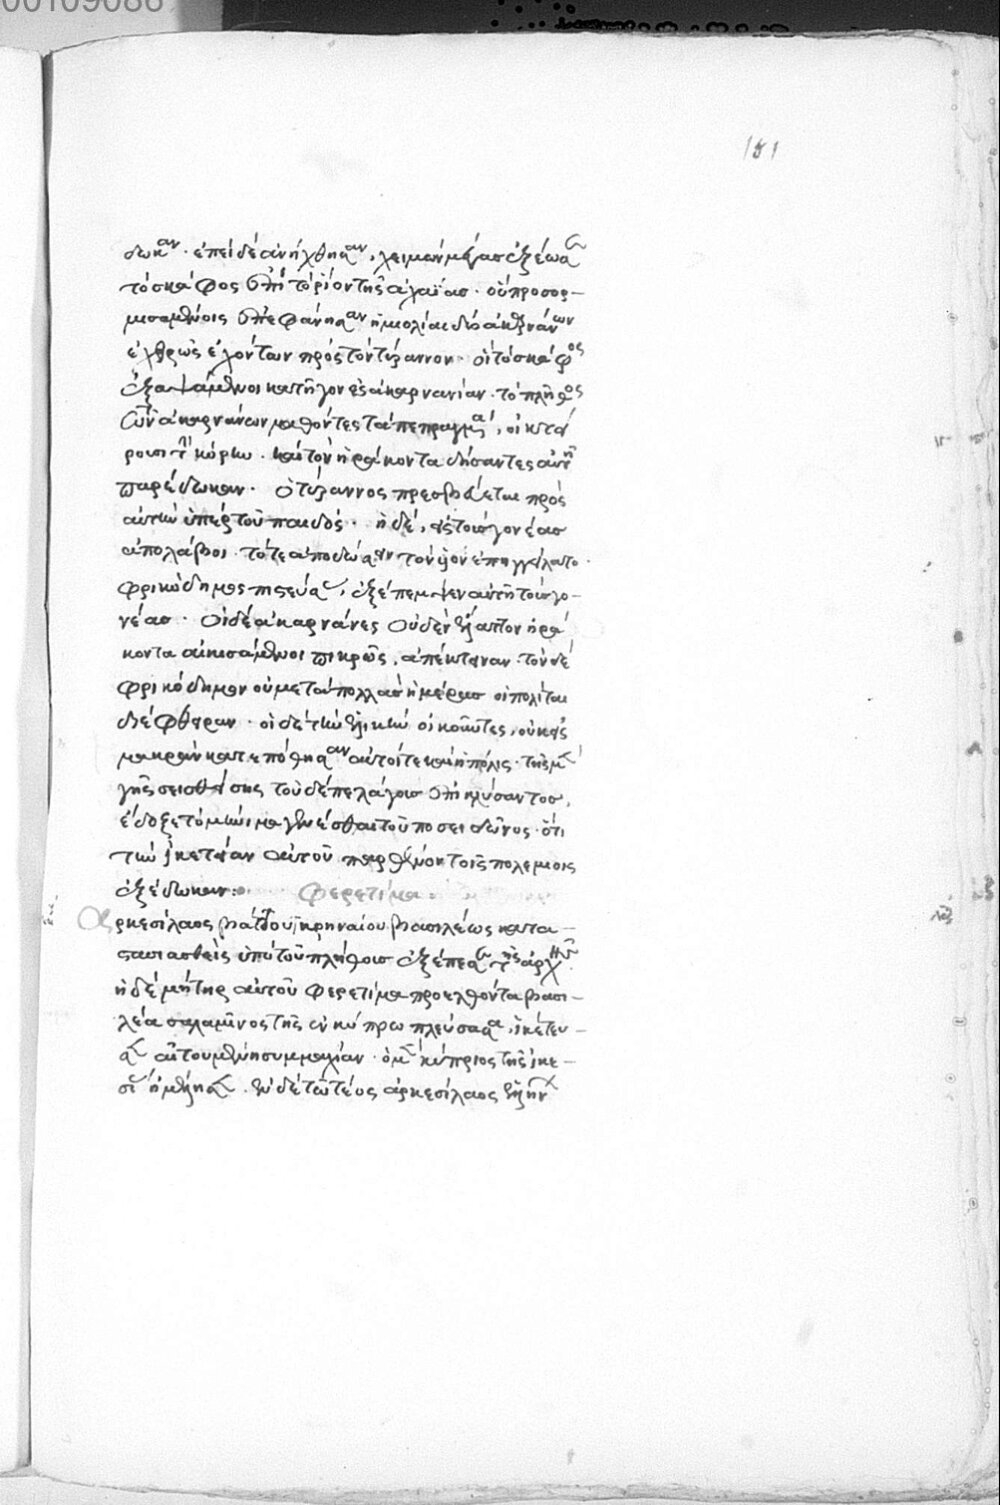 00109088
151
δωκαν · ἐπεὶ δὲ ἀνήχθησαν, χειμὼν μέγας ἐξέωσε
τὸ σκάφος ἐπὶ τὸ ῥίον τῆς ἀχαΐας · οὗ προσορ-
μισαμένοις ἐπεφάνησαν ἡμιολίαι δύο ἀκαρνάνων
ἐχθρῶς ἐχόντων πρὸς τὸν τύραννον · οἳ τὸ σκάφος
ἐξαψάμενοι κατῆγον εἰς ἀκαρνανίαν · τὸ πλῆθος
τῶν ἀκαρνάνων μαθόντες τὰ πεπραγμένα, οἰκτεί
ρουσι τὴν κόρην · καὶ τὸν ἡρα κοντα δήσαντες αὐτῇ
παρέδωκαν · ὁ τύραννος πρεσβεύεται πρὸς
αὐτὴν ὑπὲρ τοῦ παιδός · ἡ δὲ, εἰ τοὺς γονέας
ἀπολάβοι · τότε ἀποδώσειν τὸν υἱὸν ἐπηγγείλατο ·
φρικώδημος πιστεύσας, ἐξέπεμψεν αὐτῇ τοὺς γο-
νέας · οἱ δὲ ἀκαρνάνες οὐδὲν ἔλαττον ἡρά
κοντα αἰκισάμενοι πικρῶς, ἀπέκτειναν · τὸν δὲ
φρικόδημον οὐ μετὰ πολλὰς ἡμέρας οἱ πολίται
διέφθειραν · οἱ δὲ τὴν ἑλικὴν οἰκοῦντες, οὐκ εἰς
μακρὰν κατεπόθησαν αὐτοί τε καὶ ἡ πόλις · τῆς μὲν
γῆς σεισθείσης τοῦ δὲ πελάγους ἐπικλύσαντος,
ἔδοξε τὸ μήνιμα γενέσθαι τοῦ ποσειδῶνος · ὅτι
τὴν ἱκετείαν αὐτοῦ παρθένον τοῖς πολεμίοις
ἐξέδωκαν :·
φερετίμα ·
Αρκεσίλαος βάττου κυρηναίου βασιλέως κατα-
στασιασθεὶς ὑπὸ τοῦ πλήθους ἐξέπεσε τῆς ἀρχῆς ·
ἡ δὲ μήτηρ αὐτοῦ φερετίμα προελθόντα βασι-
λέα σαλαμῖνος τῆς ἐν κύπρω πλεύσασα, ἱκέτευ-
σεν αἰτουμένη συμμαχίαν · ὁ μὲν κύπριος τῆς ἱκε-
σί ἠμέλησεν · ἐν δὲ τῶ τέως ἀρκεσίλαος ἑλλην